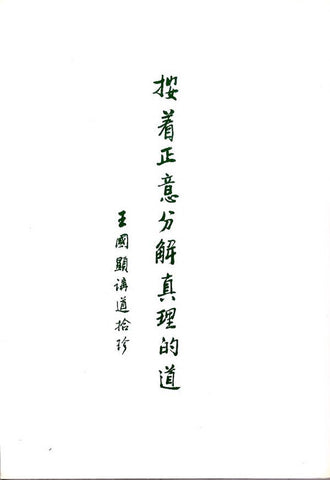 按着正意分解真理的道
王國顯講道拾珍